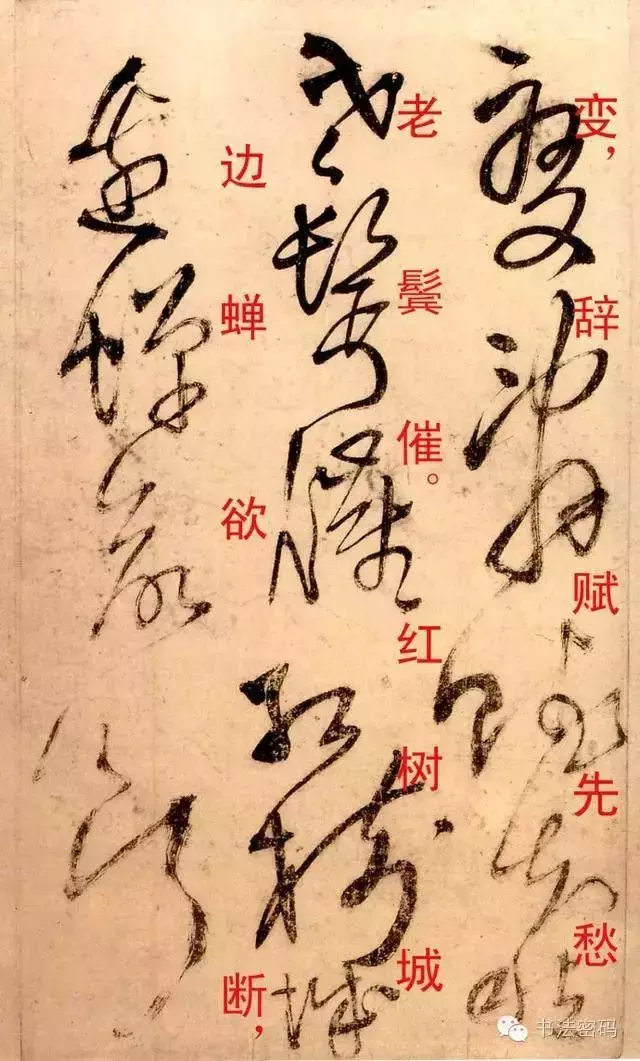 变，辞赋先愁
老鬓催。红树城
边蝉欲断，
书法密码